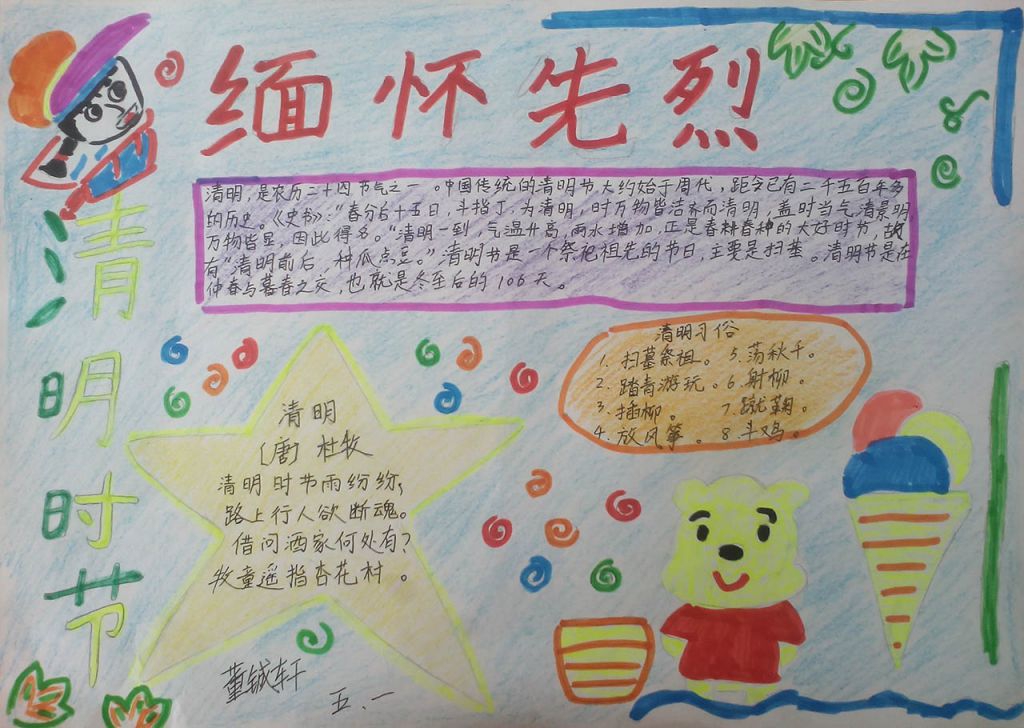 缅怀先烈
清明时节
清明，是农历二十四节气之一。中国传统的清明节大约始于周代，距今已有二千五百年多
的历史。《史书》："春分后十五日，斗指丁，为清明，时万物皆洁齐而清明，盖时当气清景明，
万物皆显，因此得名。"清明一到，气温升高，雨水增加，正是春耕春种的大好时节，故
有"清明前后，种瓜点豆。"清明节是一个祭祀祖先的节日，主要是扫墓。清明节是在
仲春与暮春之交，也就是冬至后的106天。
清明习俗
1. 扫墓祭祖。 5. 荡秋千。
2. 踏青游玩。 6. 射柳。
3. 插柳。 7. 蹴鞠。
4. 放风筝。 8. 斗鸡。
清明
〔唐〕杜牧
清明时节雨纷纷，
路上行人欲断魂。
借问酒家何处有？
牧童遥指杏花村。
董铖轩
五.一